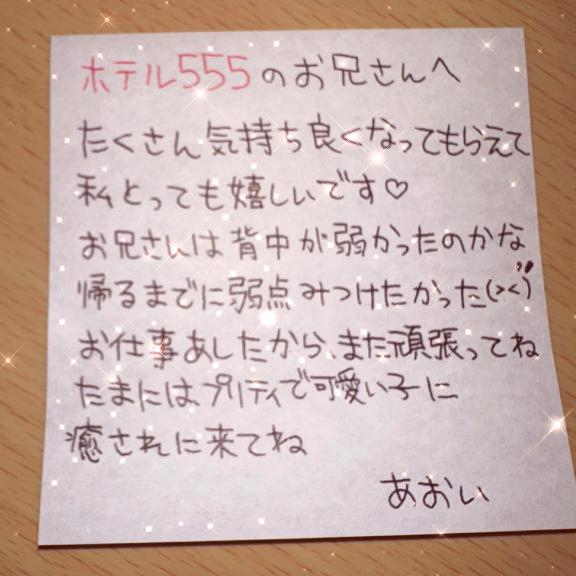 ホテル555のお兄さんへ
たくさん気持ち良くなってもらえて
私とっても嬉しいです♡
お兄さんは背中が弱かったのかな
帰るまでに弱点みつけたかった(><)
お仕事あしたから、また頑張ってね
たまにはプリティで可愛い子に
癒されに来てね
あおい